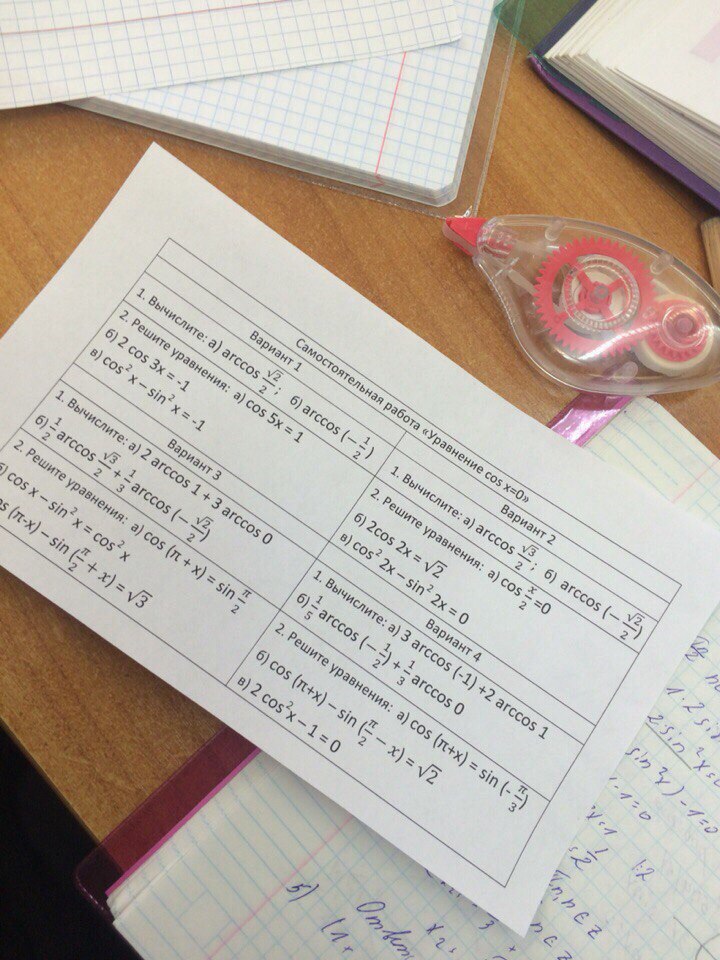 Самостоятельная работа «Уравнение cos x=0»
Вариант 1
1. Вычислите: а) arccos √2/2; б) arccos (− 1/2)
2. Решите уравнения: а) cos 5x = 1
б) 2 cos 3x = -1
в) cos² x − sin² x = -1
Вариант 2
1. Вычислите: а) arccos √3/2; б) arccos (− √2/2)
2. Решите уравнения: а) cos x/2 =0
б) 2cos 2x = √2
в) cos² 2x− sin² 2x = 0
Вариант 3
1. Вычислите: а) 2 arccos 1 + 3 arccos 0
б) 1/2 arccos √3/2 + 1/3 arccos (− √2/2)
2. Решите уравнения: а) cos (π + x) = sin π/2
б) cos x − sin² x = cos² x
cos (π-x) − sin (π/2 + x) = √3
Вариант 4
1. Вычислите: а) 3 arccos (-1) +2 arccos 1
б) 1/5 arccos (− 1/2) + 1/3 arccos 0
2. Решите уравнения: а) cos (π+x) = sin (- π/3)
б) cos (π+x) − sin (π/2 − x) = √2
в) 2 cos² x − 1 = 0
5)
Ответ